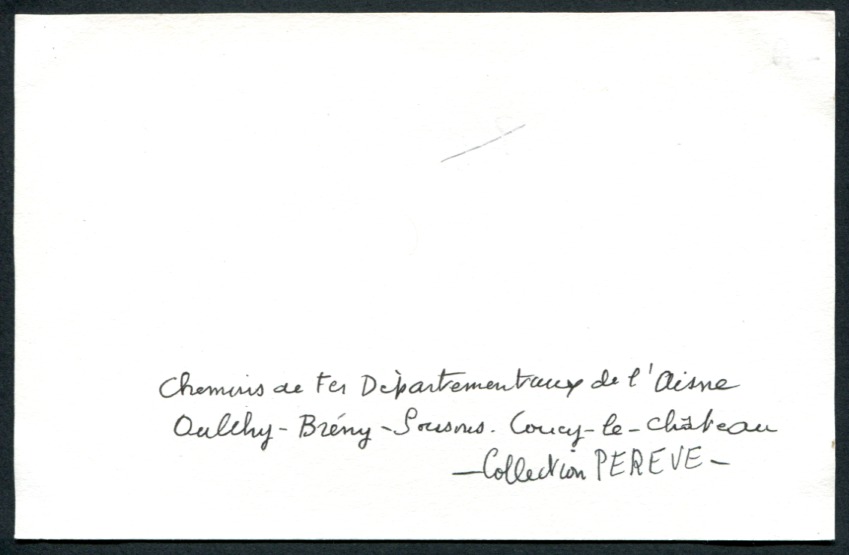 Chemins de Fer Départementaux de l'Aisne
Oulchy - Brény - Soissons. Coucy-le-Château
- Collection PEREVE -